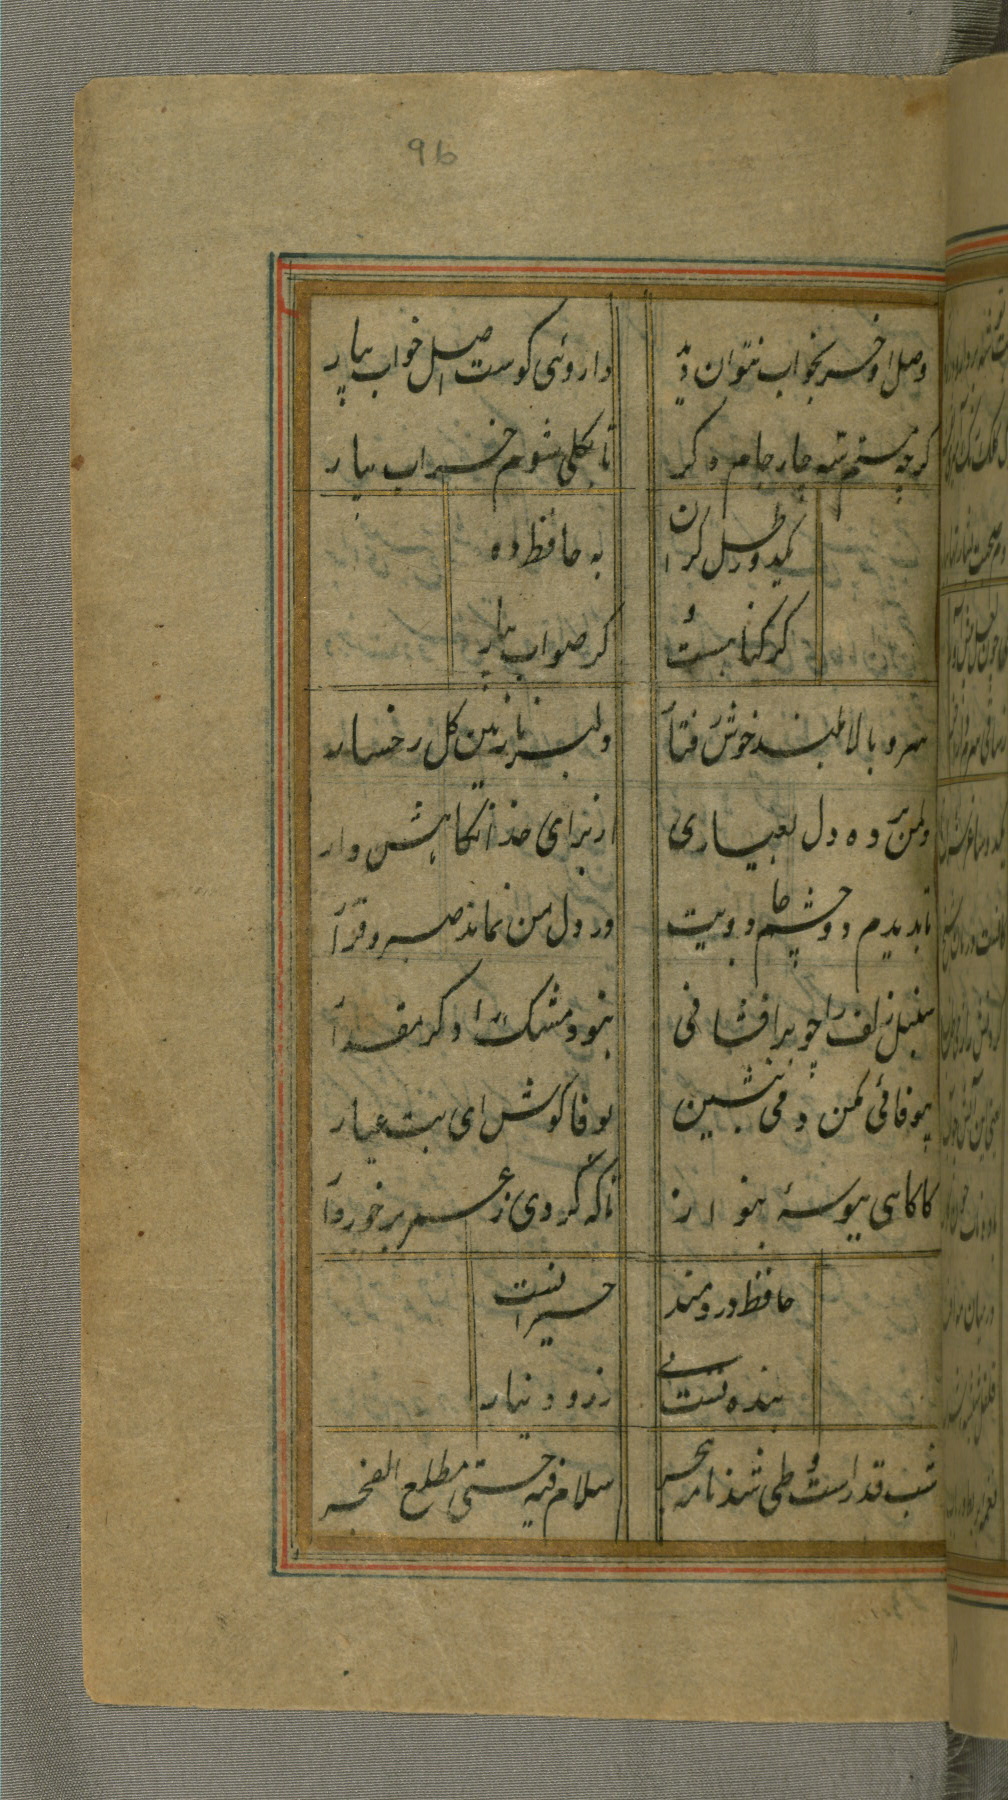 96
وصل او خبر بخواب نتوان دید
داروئی کوست اصل خواب بیار
گرچه مستم سه چار جام دگر
تا بکلی شوم خراب بیار
یکدو رطل گران
به حافظ ده
گر گناهست و
گر صواب بیار
سرو بالا بلند خوش رفتار
دلبر نازنین گل رخسار
دل من برده ای بعیاری
از برای خدا نگاهش دار
تا بدیدم دو چشم جادویت
در دل من نماند صبر و قرار
سنبل زلف را چو برافشانی
نبود مشک را دگر مقدار
بیوفائی مکن دمی بنشین
بوفا کوش ای بت عیار
گاگاهی ببوسهٔ بنواز
تا که گردی ز عمر برخوردار
حافظ دردمند
حیرانست
بنده تست بی
زر و دینار
شب قدر است و طی شد نامه هجر
سلام فیه حتی مطلع الفجر